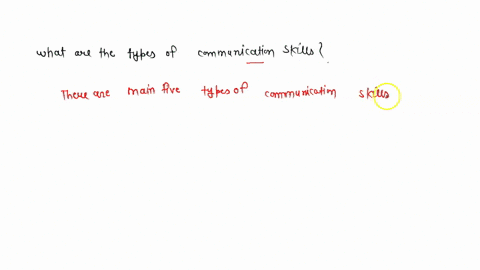 what are the types of communication skills?
There are main five types of communication skills